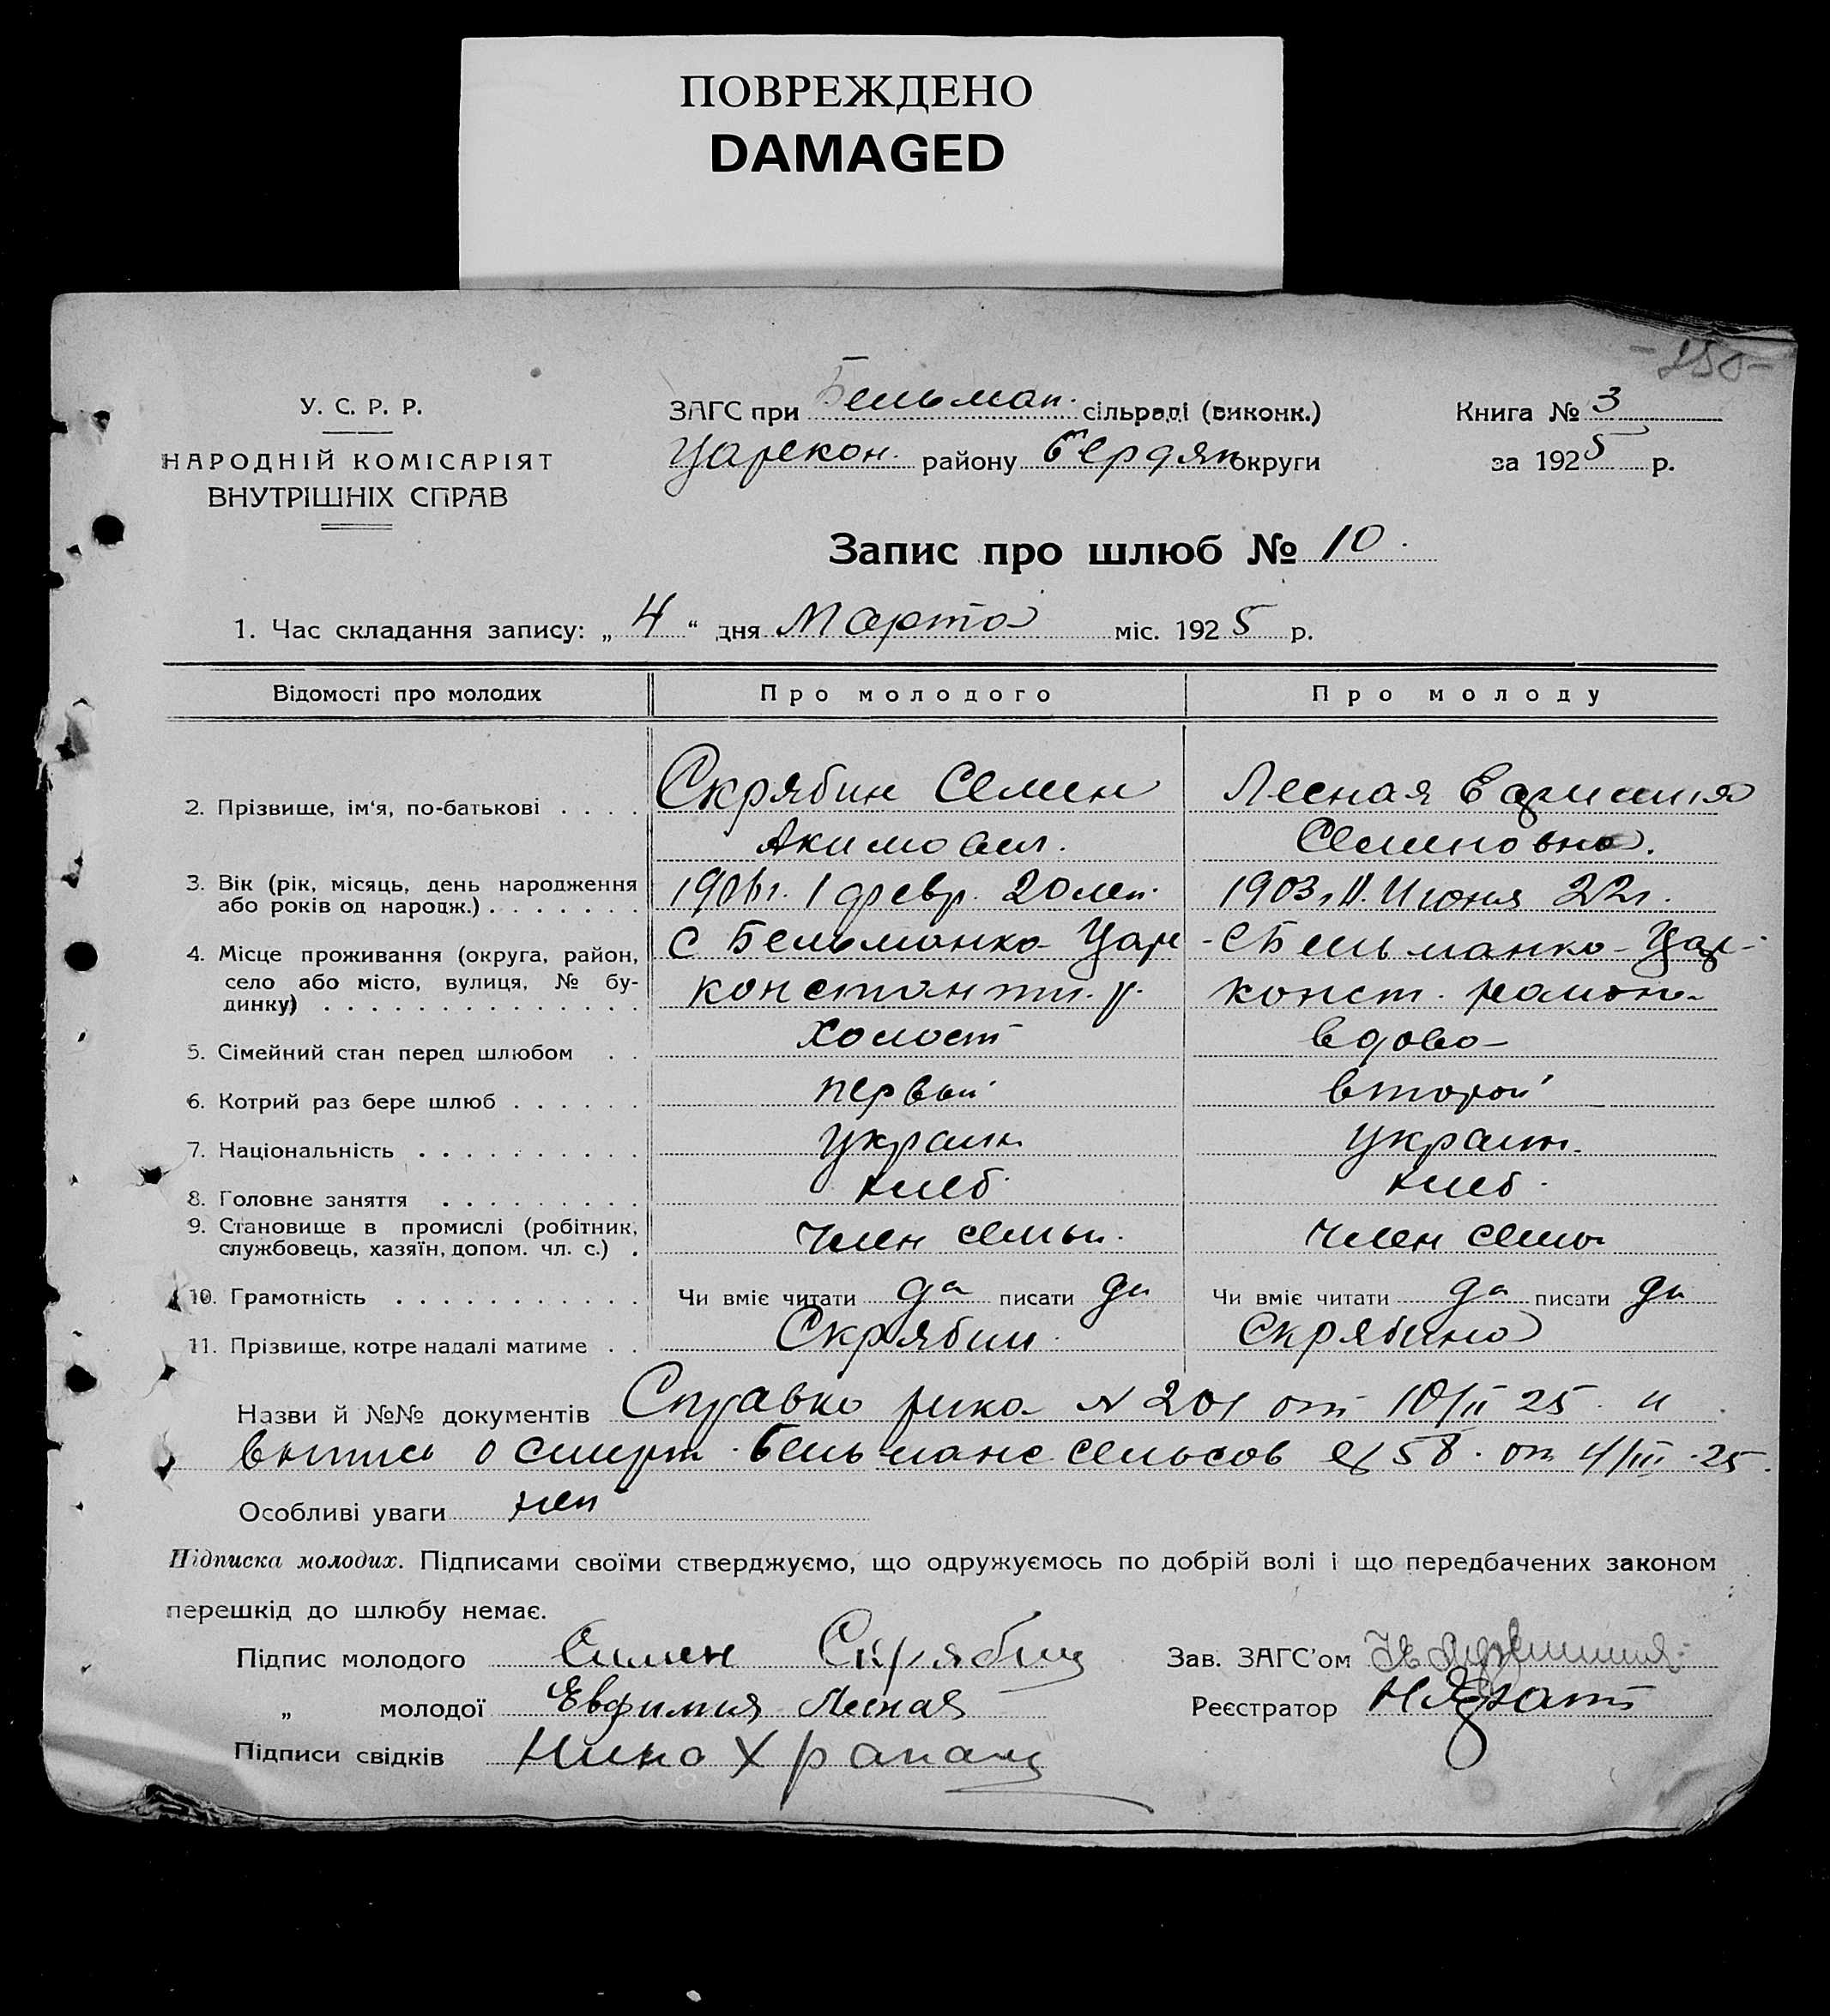 ПОВРЕЖДЕНО
DAMAGED
-250-
У. С. Р. Р.
НАРОДНІЙ КОМІСАРІЯТ
ВНУТРІШНІХ СПРАВ
ЗАГС при Бельман. сільраді (виконк.)
Царекон. району Бердян округи
Книга № 3
за 1925 р.
Запис про шлюб № 10.
1. Час складання запису: „ 4 “ дня Марта міс. 1925 р.
Відомості про молодих Про молодого Про молоду
2. Прізвище, ім‘я, по-батькові . . . . Скрябин Семен Лесная
Акимович. Семеновна.
3. Вік (рік, місяць, день народження 1 февр. 20 лет. 1903 Июня 22г.
або років од народж.) . . . . . . .
4. Місце проживання (округа, район, с Бельманка Царе - с Бельманка - Цар-
село або місто, вулиця, № бу-
динку) . . . . . . . . . . . . . . константин. р. конст. района
5. Сімейний стан перед шлюбом . . холост вдова
6. Котрий раз бере шлюб . . . . . . первый второй
7. Національність . . . . . . . . . . украин украин.
8. Головне заняття . . . . . . . . . хлеб. хлеб.
9. Становище в промислі (робітник,
службовець, хазяїн, допом. чл. с.) . член семьи. член семьи
10. Грамотність . . . . . . . . . . . Чи вміє читати да писати да Чи вміє читати да писати да
11. Прізвище, котре надалі матиме . . Скрябин. Скрябина
Назви й №№ документів Справка рика № 201 от 10/II 25. и
выпись о смерт. Бельманс сельсов № 58. от 4/III.25.
Особливі уваги нет
Підписка молодих. Підписами своїми стверджуємо, що одружуємось по добрій волі і що передбачених законом
перешкід до шлюбу немає.
Підпис молодого Симен Скрябин Зав. ЗАГС’ом
„ молодої Евфимия Лесная Реєстратор
Підписи свідків Нина Храпач